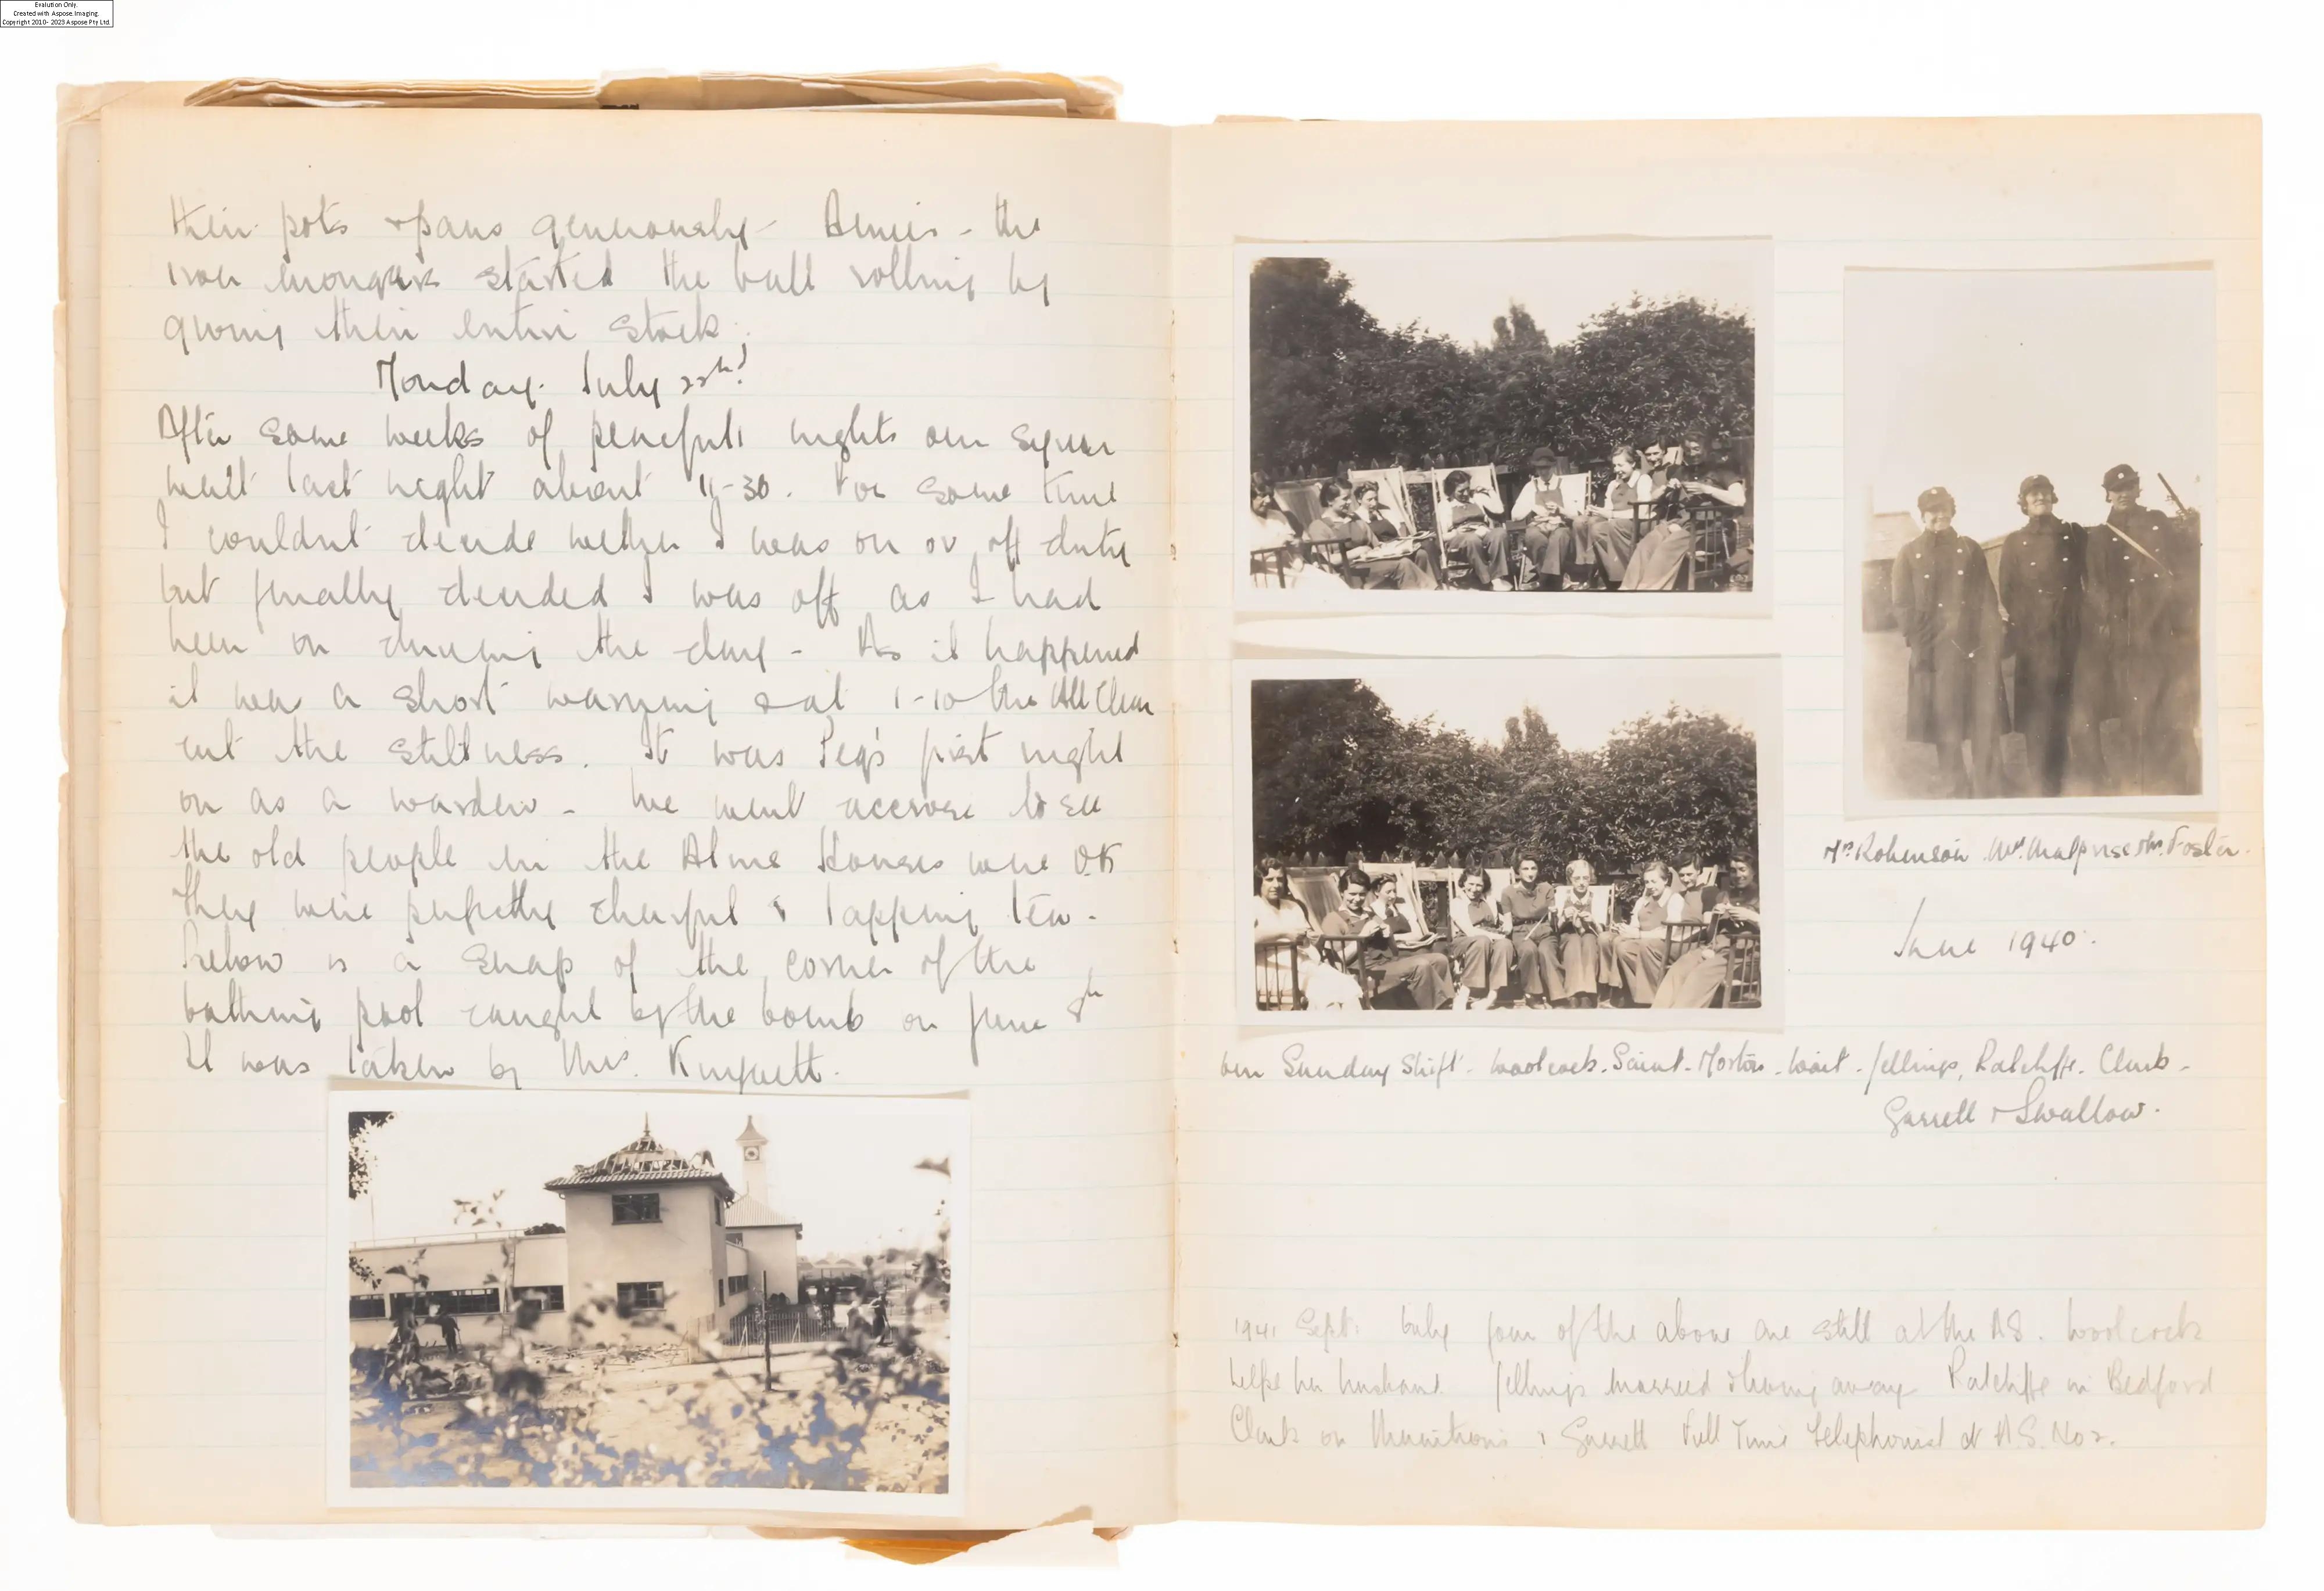 Evalution Only.
Created with Aspose.Imaging.
Copyright 2010- 2023 Aspose Pty Ltd.
their pots & pans generously - the
iron mongers started the ball rolling by
giving their entire stock.
Monday. July 22nd
After some weeks of peaceful nights our syren
went last night about 11-30. For some time
I couldnt decide wether I was on or off duty
but finally decided I was off as I had
been on during the day - As it happened
it was a short warning & at 1-10 the All Clear
cut the stillness. It was Peg's first night
on as a warden - We went accross to see
the old people in the Alms Houses were O.K
They were perfectly cheerful & lapping tea -
Below is a snap of the corner of the
bathing pool caught by the bomb on June 8th
It was taken by Mrs.
Mrs Robinson Mrs. Malpuss Mrs. Foster.
June 1940.
Our Sunday Shift - Woolcock. Saint - Morton - Wait - Jellings, Ratcliffe. Clark -
Garrett & Swallow.
1941 Sept: Only four of the above are still at the A.S. Woolcock
helps her husband. Jellings married & living away Ratcliffe in Bedford
Clark on Munitions & Garrett Full Time Telephonist at A.S. No 2.